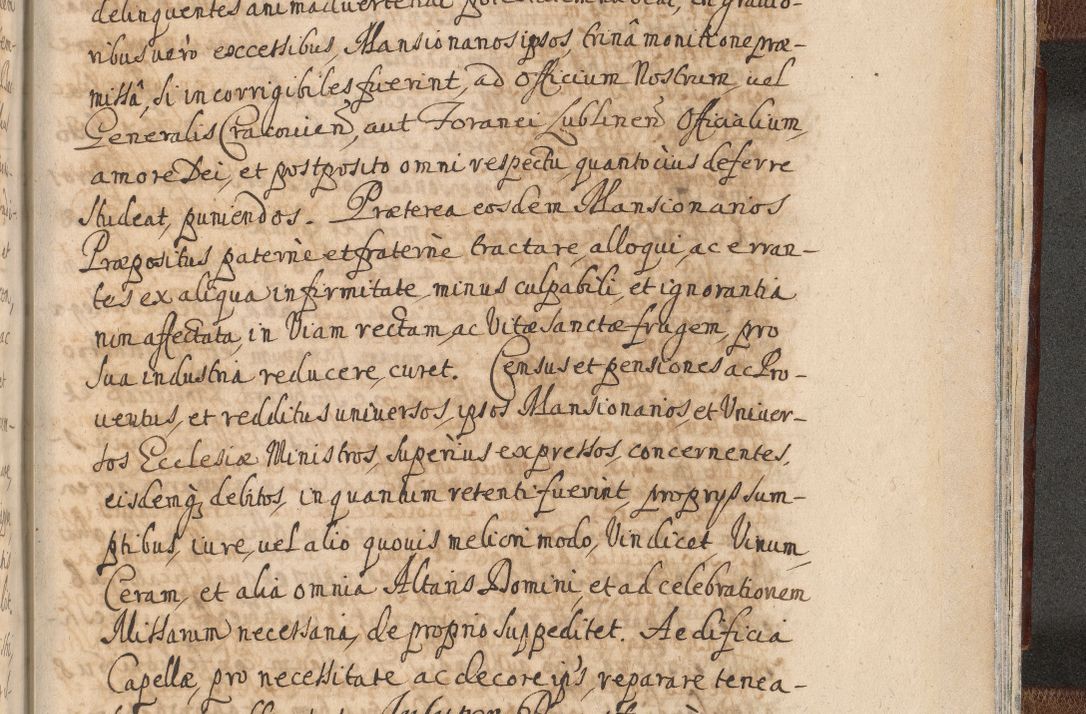 delinquentes animadvertendi potestatem habeat, in gravio-
ribus vero excessibus, Mansionarios ipsos, trinâ monitione præ-
missâ, si incorrigibiles fuerint, ad Officium Nostrum, vel
Generalis Cracovien, aut Foranei Lublinen Officialium,
amore Dei, et postposito omni respectu, quantocius deferre
studeat, puniendos. Præterea eosdem Mansionarios
Præpositus paternè et fraternè tractare, alloqui, ac erran-
tes ex aliqua infirmitate, minus culpabili, et ignorantia
non affectata, in Viam rectam, ac Vitæ sanctæ frugem, pro
sua industria reducere, curet. Census et pensiones ac Pro-
ventus, et redditus universos, ipsos Mansionarios et Univer-
sos Ecclesiæ Ministros, superius expressos, concernentes,
eisdemq; debitos, in quantum retenti fuerint, proprys sum-
ptibus, iure, vel alio quovis meliori modo, Vindicet, Vinum,
Ceram, et alia omnia Altaris Domini, et ad celebrationem
Missarum necessaria, de proprio suppeditet. Aedificia
Capellæ, pro necessitate ac decore ip's, reparare tenea-